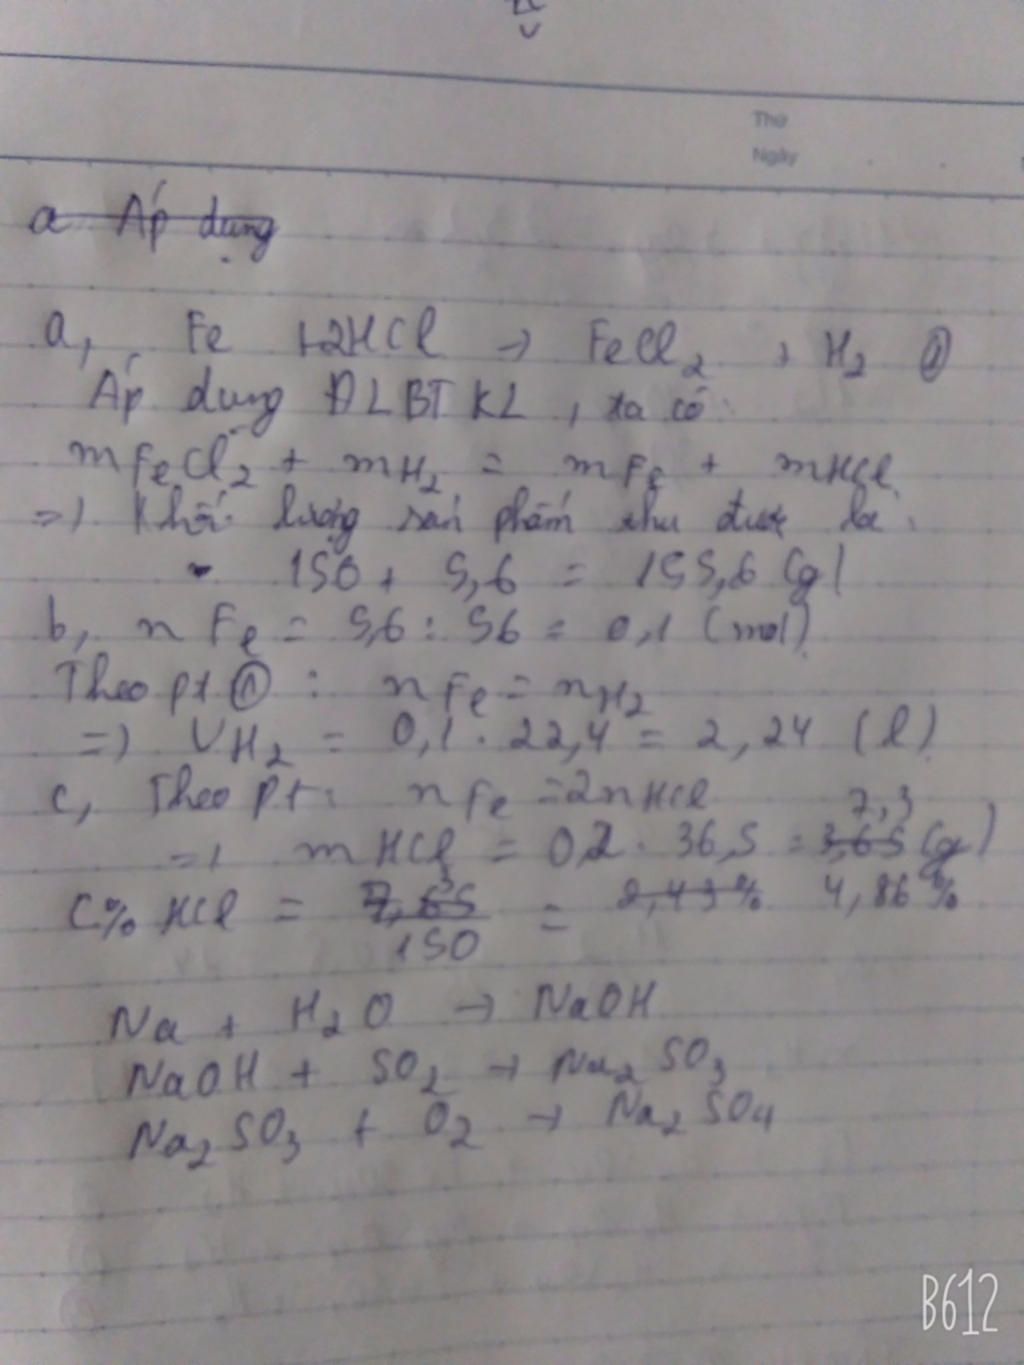 Thứ
Ngày
a Áp dụng
a, Fe +2HCl → FeCl2 + H2 ①
Áp dụng ĐLBTKL, ta có:
mFeCl2 + mH2 = mFe + mHCl
=> Khối lượng sản phẩm thu được là:
150 + 5,6 = 155,6 (g)
b, nFe = 5,6 : 56 = 0,1 (mol)
Theo pt ① : nFe = nH2
=> VH2 = 0,1 . 22,4 = 2,24 (l)
c, Theo pt: nFe = 2nHCl
=> mHCl = 0,2 . 36,5 = 3,65 7,3 (g)
C% HCl = / 150 = 2,43% 4,86%
Na + H2O → NaOH
NaOH + SO2 → Na2SO3
Na2SO3 + O2 → Na2SO4
B612